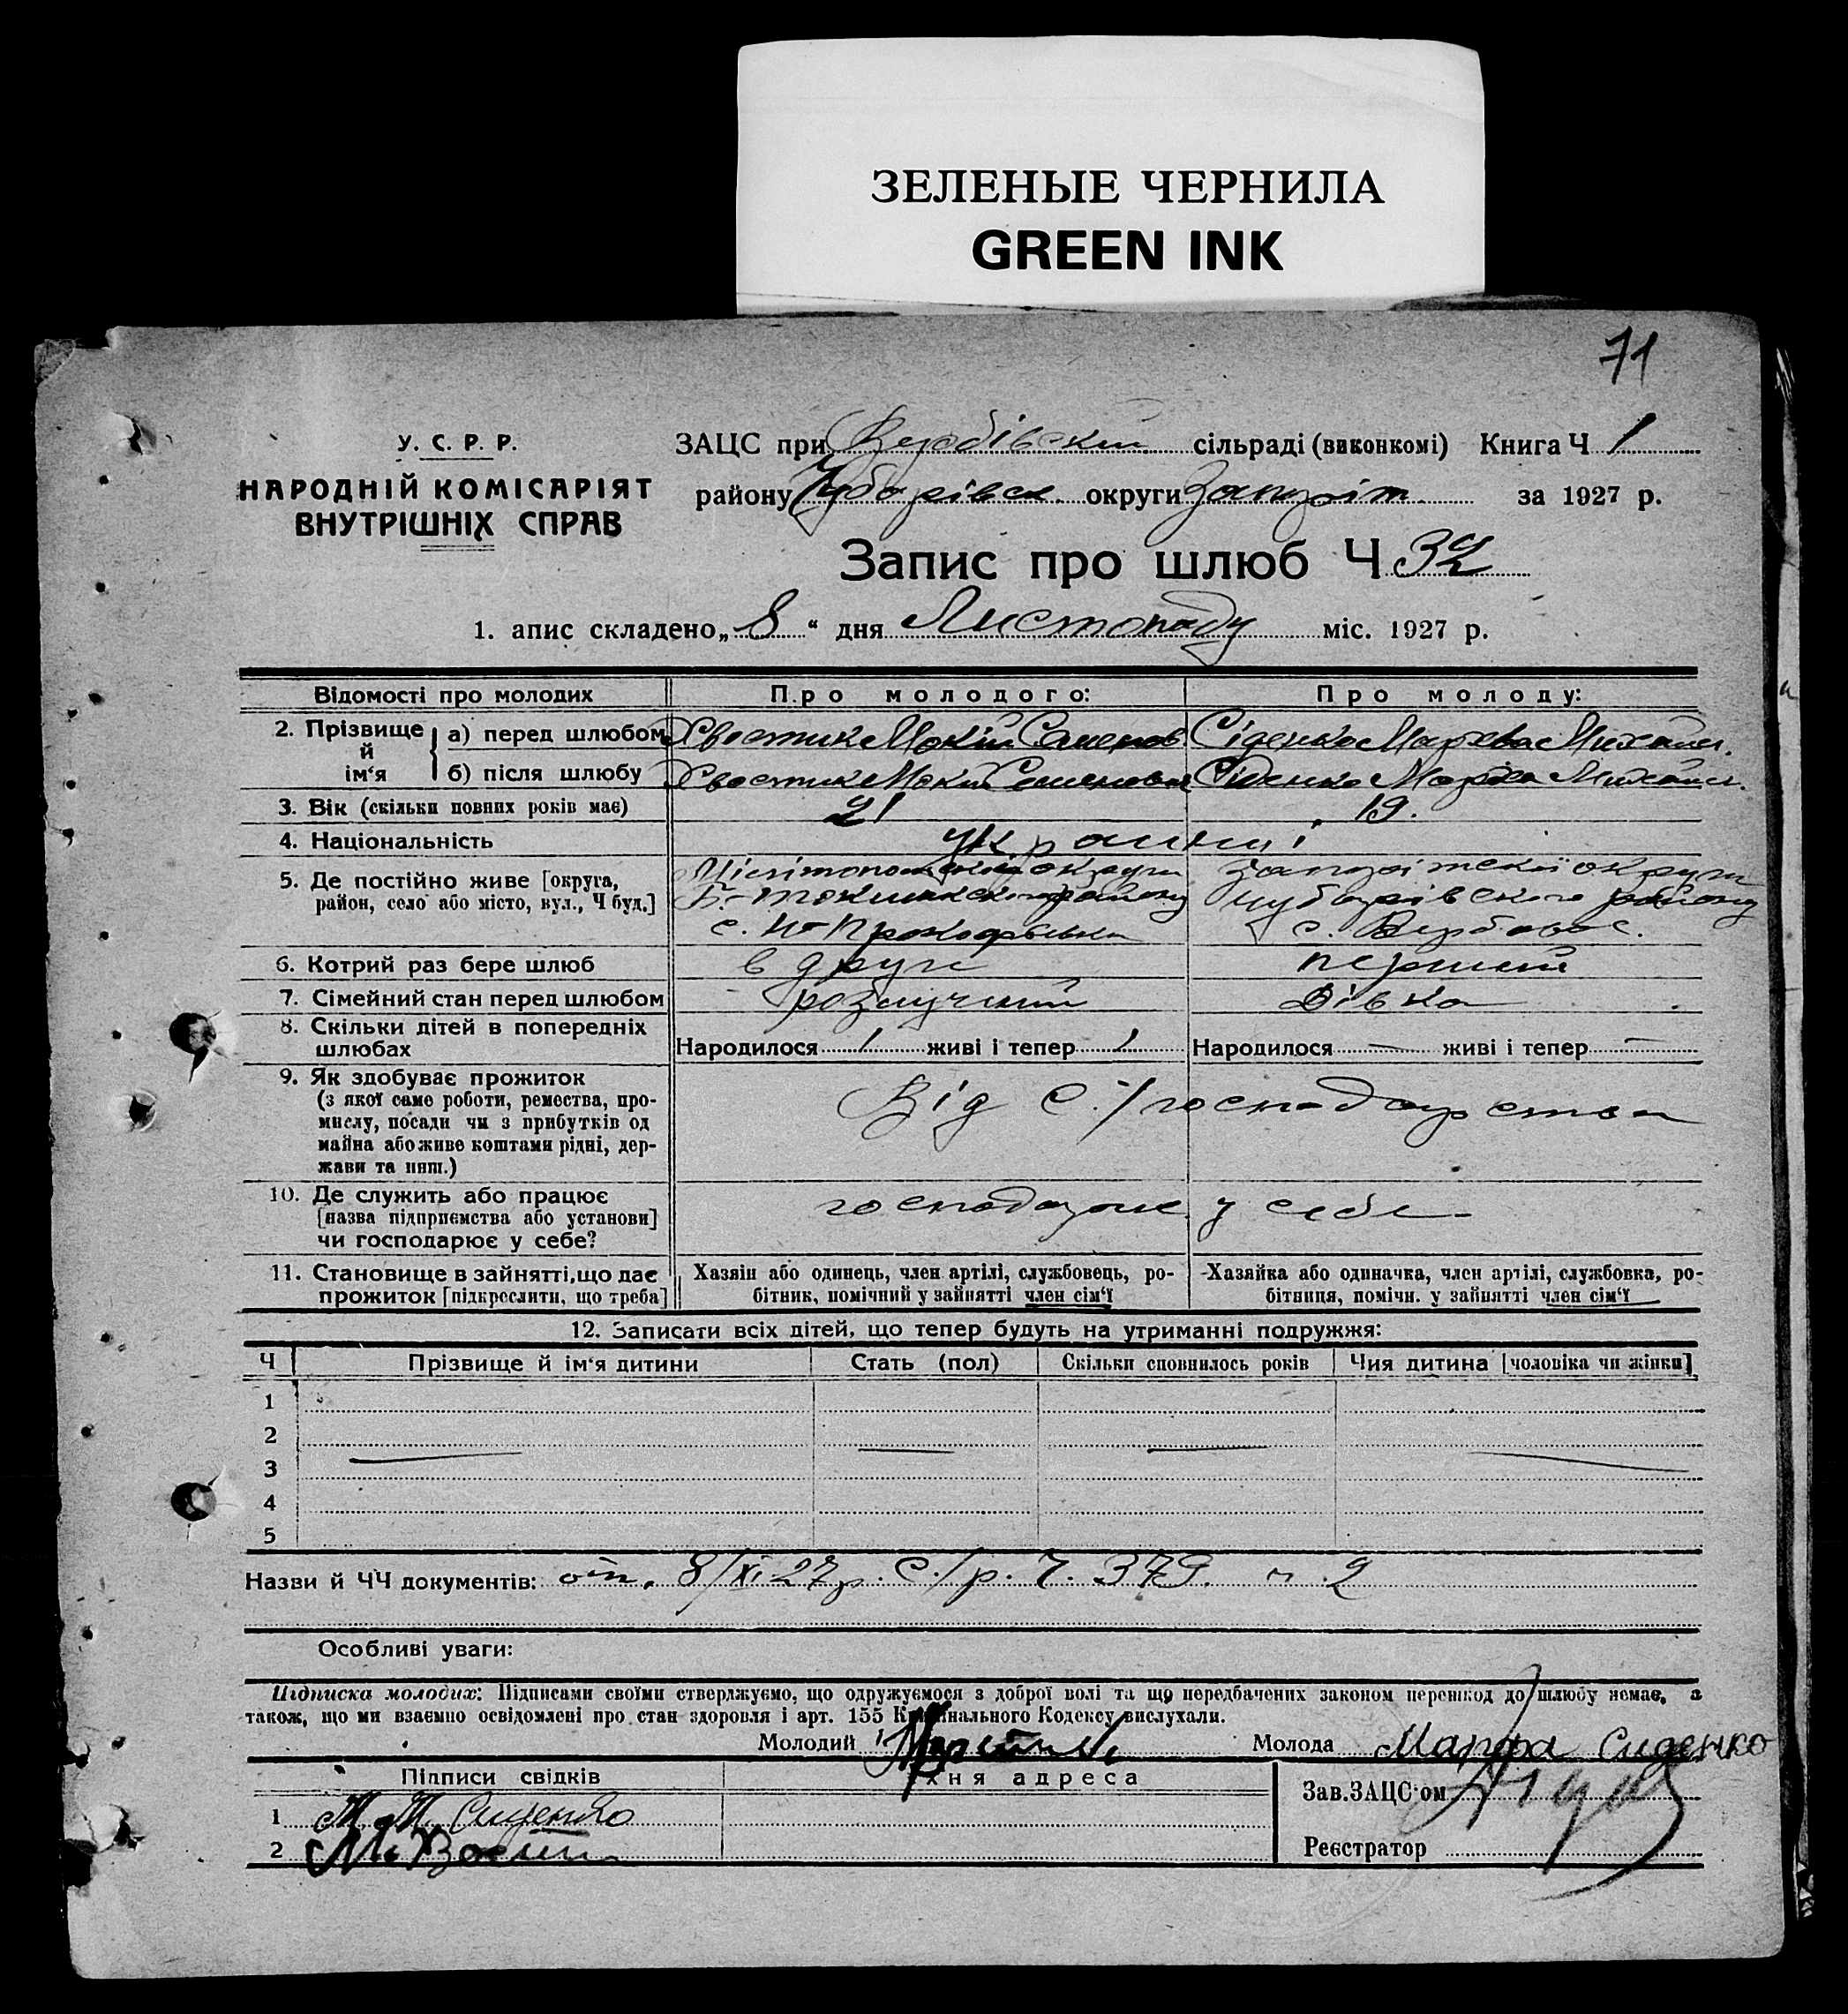 ЗЕЛЕНЫЕ ЧЕРНИЛА
GREEN INK
71
У. С. Р. Р.
НАРОДНІЙ КОМІСАРІЯТ
ВНУТРІШНІХ СПРАВ
ЗАЦС при Вербівский сільраді (виконкомі) Книга Ч 1
району Чубарівск. округи Запоріт. за 1927 р.
Запис про шлюб Ч 32
1. апис складено „ 8 “ дня Листопаду міс. 1927 р.
Відомості про молодих Про молодого: Про молоду:
2. Прізвище й ім‘я
а) перед шлюбом Хвостик Мокій Семенов Сіденко Марфа Михайл.
б) після шлюбу Хвостик Мокий Семенович Сіденко Марфа Михайл.
3. Вік (скільки повних років має) 21 19.
4. Національність українці
5. Де постійно живе [округа, район, село або місто, вул., Ч буд.]
Мелітопольскої округи
Б.-Токмакского району
с. Н-Прокофьевка
Запорітскої округи
Чубарівского району
с. Вербове.
6. Котрий раз бере шлюб в друге перший
7. Сімейний стан перед шлюбом розлучений Дівка
8. Скільки дітей в попередніх шлюбах
Народилося 1 живі і тепер 1 Народилося — живі і тепер —
9. Як здобуває прожиток
(з якої саме роботи, ремества, про-
мислу, посади чи з прибутків од
майна або живе коштами рідні, дер-
жави та инш.)
Від С./господарства
10. Де служить або працює
[назва підприємства або установи]
чи господарює у себе?
господарює у себе
11. Становище в зайнятті, що дає
прожиток [підкреслити, що треба]
Хазяїн або одинець, член артілі, службовець, ро-
бітник, помічний у зайнятті член сім‘ї
Хазяйка або одиначка, член артілі, службовка, ро-
бітниця, помічн. у зайнятті член сім‘ї
12. Записати всіх дітей, що тепер будуть на утриманні подружжя:
Ч Прізвище й ім‘я дитини Стать (пол) Скільки сповнилось років Чия дитина [чоловіка чи жінки]
1
2
3
4
5
Назви й ЧЧ документів: от. 8/XI 27р. С./р. Ч. 379. 2
Особливі уваги:
Підписка молодих: Підписами своїми стверджуємо, що одружуємося з доброї волі та що передбачених законом перешкод до шлюбу немає, а
також, що ми взаємно освідомлені про стан здоровля і арт. 155 Кримінального Кодексу вислухали.
Молодий Молода Марфа Сиденко
Підписи свідків їхня адреса
1 М. М. Сиденко
2
Зав. ЗАЦС‘ом
Реєстратор